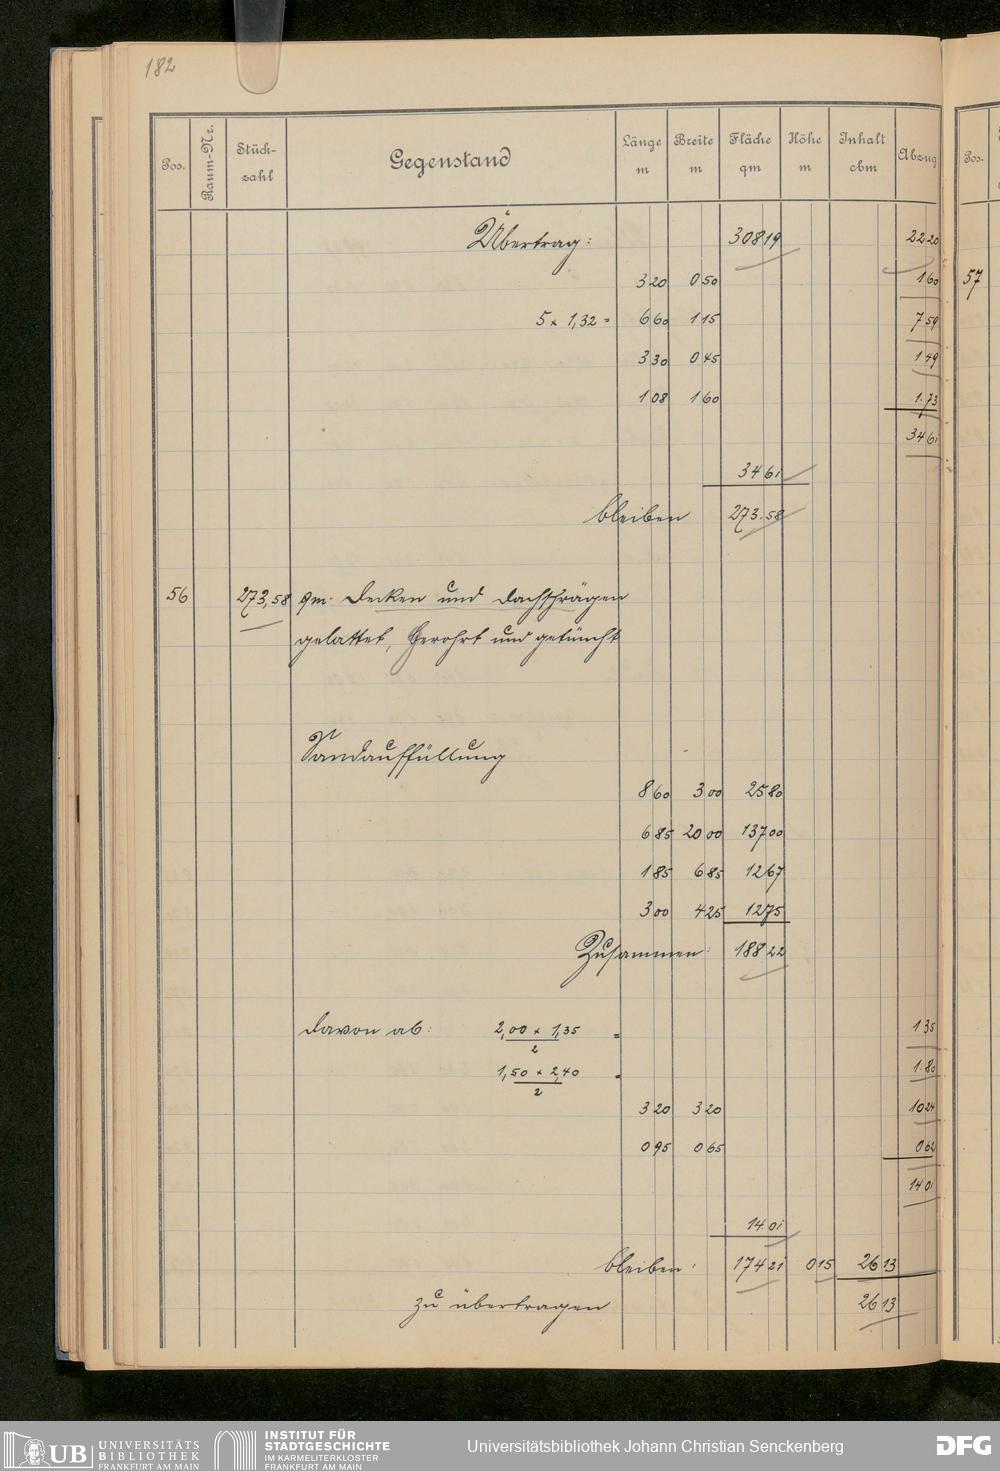 182
Pos. Raum-Nr. Stück-zahl Gegenstand Länge m Breite m Fläche qm Höhe m Inhalt cbm Abzug Pos.
Übertrag: 308 19 22 20
3 20 0 50 1 60 57
5 x 1,32 = 6 60 1 15 7 59
3 30 0 45 1 49
1 08 1 60 1.73
34 61
34 61
bleiben 273.58
56 273,58 qm. Decken und Dachschrägen
gelattet, gerohrt und getüncht
Sandauffüllung
8 60 3 00 25 80
6 85 20 00 137 00
1 85 6 85 12 67
3 00 4 25 12 75
Zusammen: 188 22
Davon ab: 2,00 x 1,35 = 1 35
2
1,50 x 2,40 = 1.80
2
3 20 3 20 10 24
0 95 0 65 0 62
14 01
14.01
bleiben: 174 21 0 15 26 13
zu übertragen 26 13
UB UNIVERSITÄTS BIBLIOTHEK FRANKFURT AM MAIN
INSTITUT FÜR STADTGESCHICHTE IM KARMELITERKLOSTER FRANKFURT AM MAIN
Universitätsbibliothek Johann Christian Senckenberg
DFG